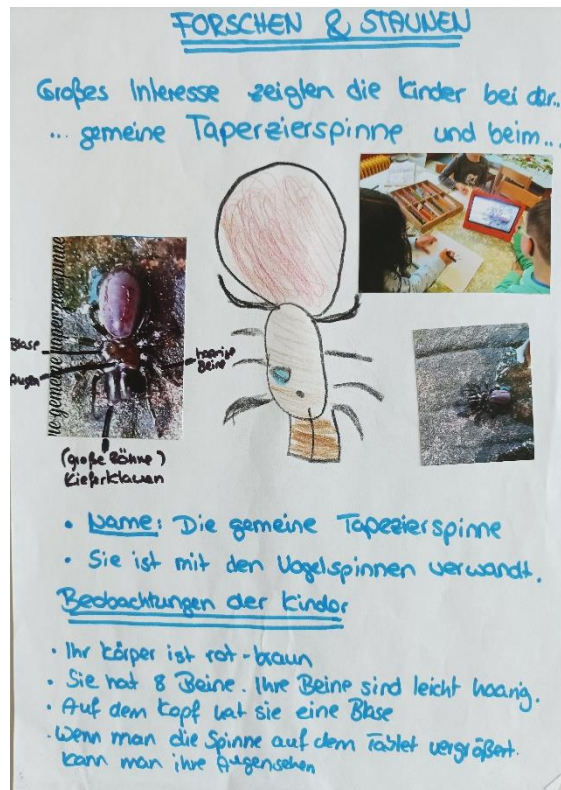 FORSCHEN & STAUNEN
Großes Interesse zeigten die Kinder bei der...
... gemeine Taperzierspinne und beim...
Blase
Augen
haarige
Beine
(große Zähne)
Kieferklauen
• Name: Die gemeine Tapezierspinne
• Sie ist mit den Vogelspinnen verwandt.
Beobachtungen der Kinder
• Ihr Körper ist rot-braun
• Sie hat 8 Beine. Ihre Beine sind leicht haarig.
• Auf dem Kopf hat sie eine Blase
• Wenn man die Spinne auf dem Tablet vergrößert.
kann man ihre Augensehen